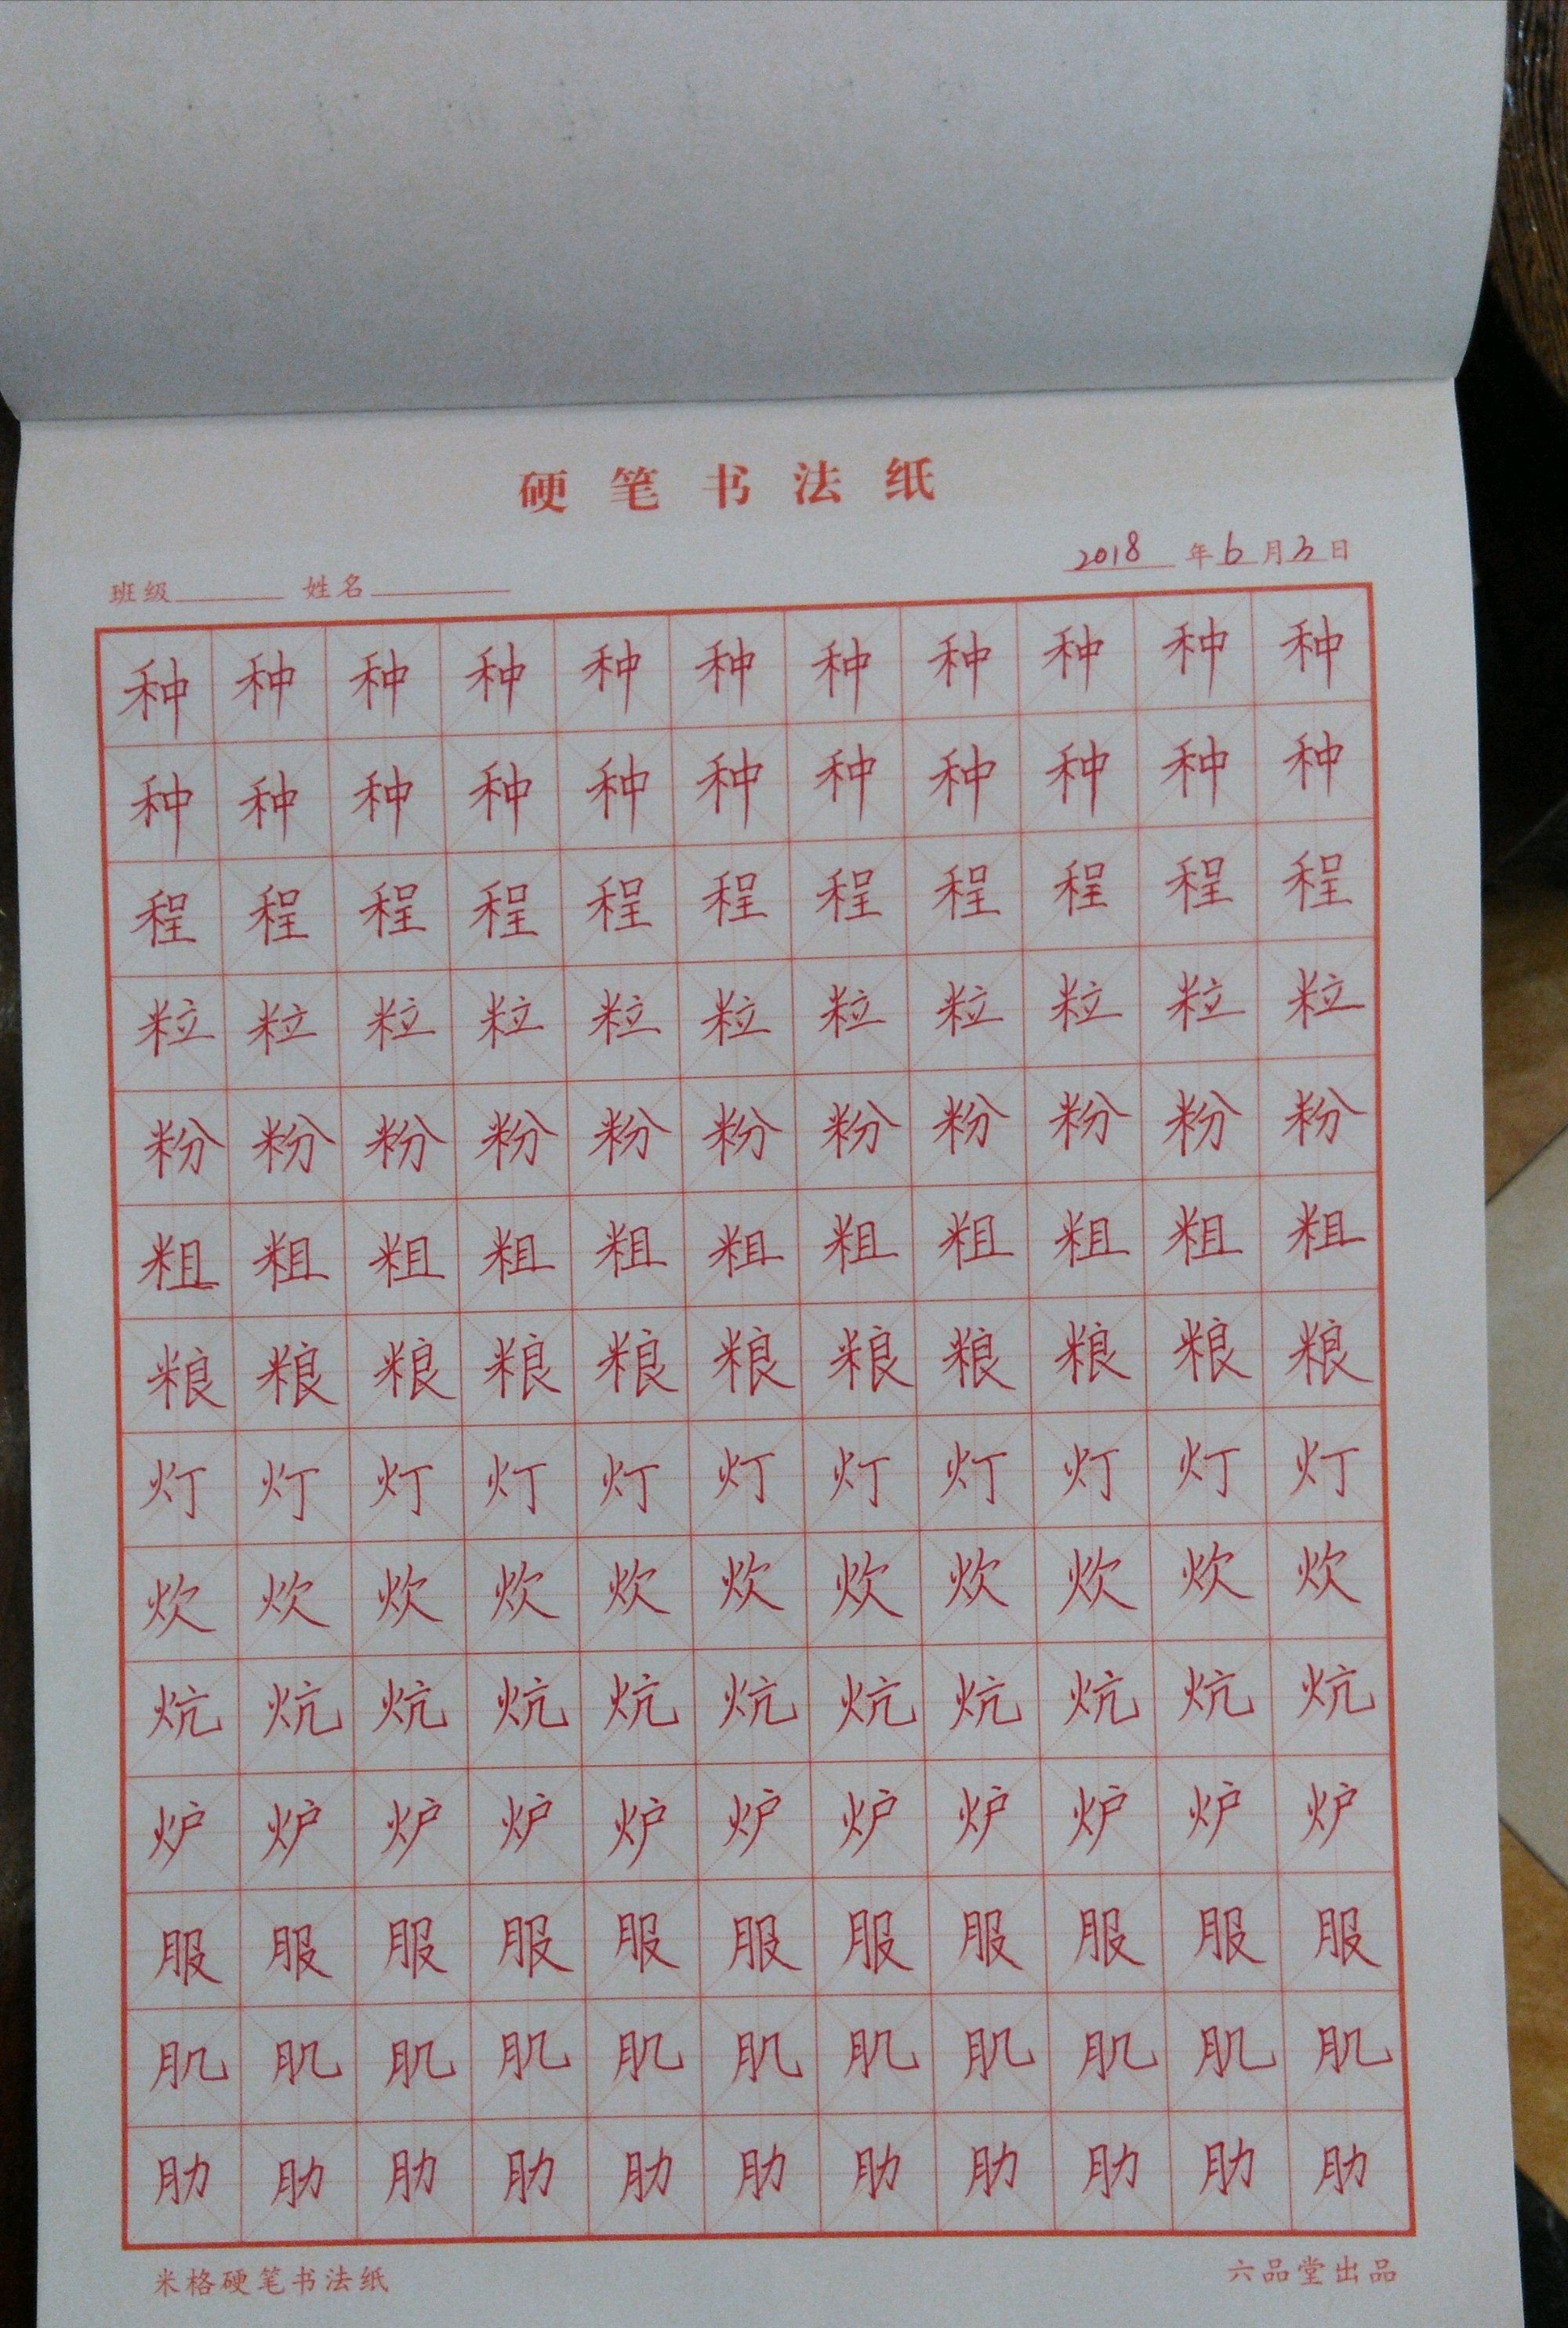 硬笔书法纸
班级 姓名 2018年6月3日
种种种种种种种种种种种
种种种种种种种种种种种
程程程程程程程程程程程
粒粒粒粒粒粒粒粒粒粒粒
粉粉粉粉粉粉粉粉粉粉粉
粗粗粗粗粗粗粗粗粗粗粗
粮粮粮粮粮粮粮粮粮粮粮
灯灯灯灯灯灯灯灯灯灯灯
炊炊炊炊炊炊炊炊炊炊炊
炕炕炕炕炕炕炕炕炕炕炕
炉炉炉炉炉炉炉炉炉炉炉
服服服服服服服服服服服
肌肌肌肌肌肌肌肌肌肌肌
肋肋肋肋肋肋肋肋肋肋肋
米格硬笔书法纸 六品堂出品